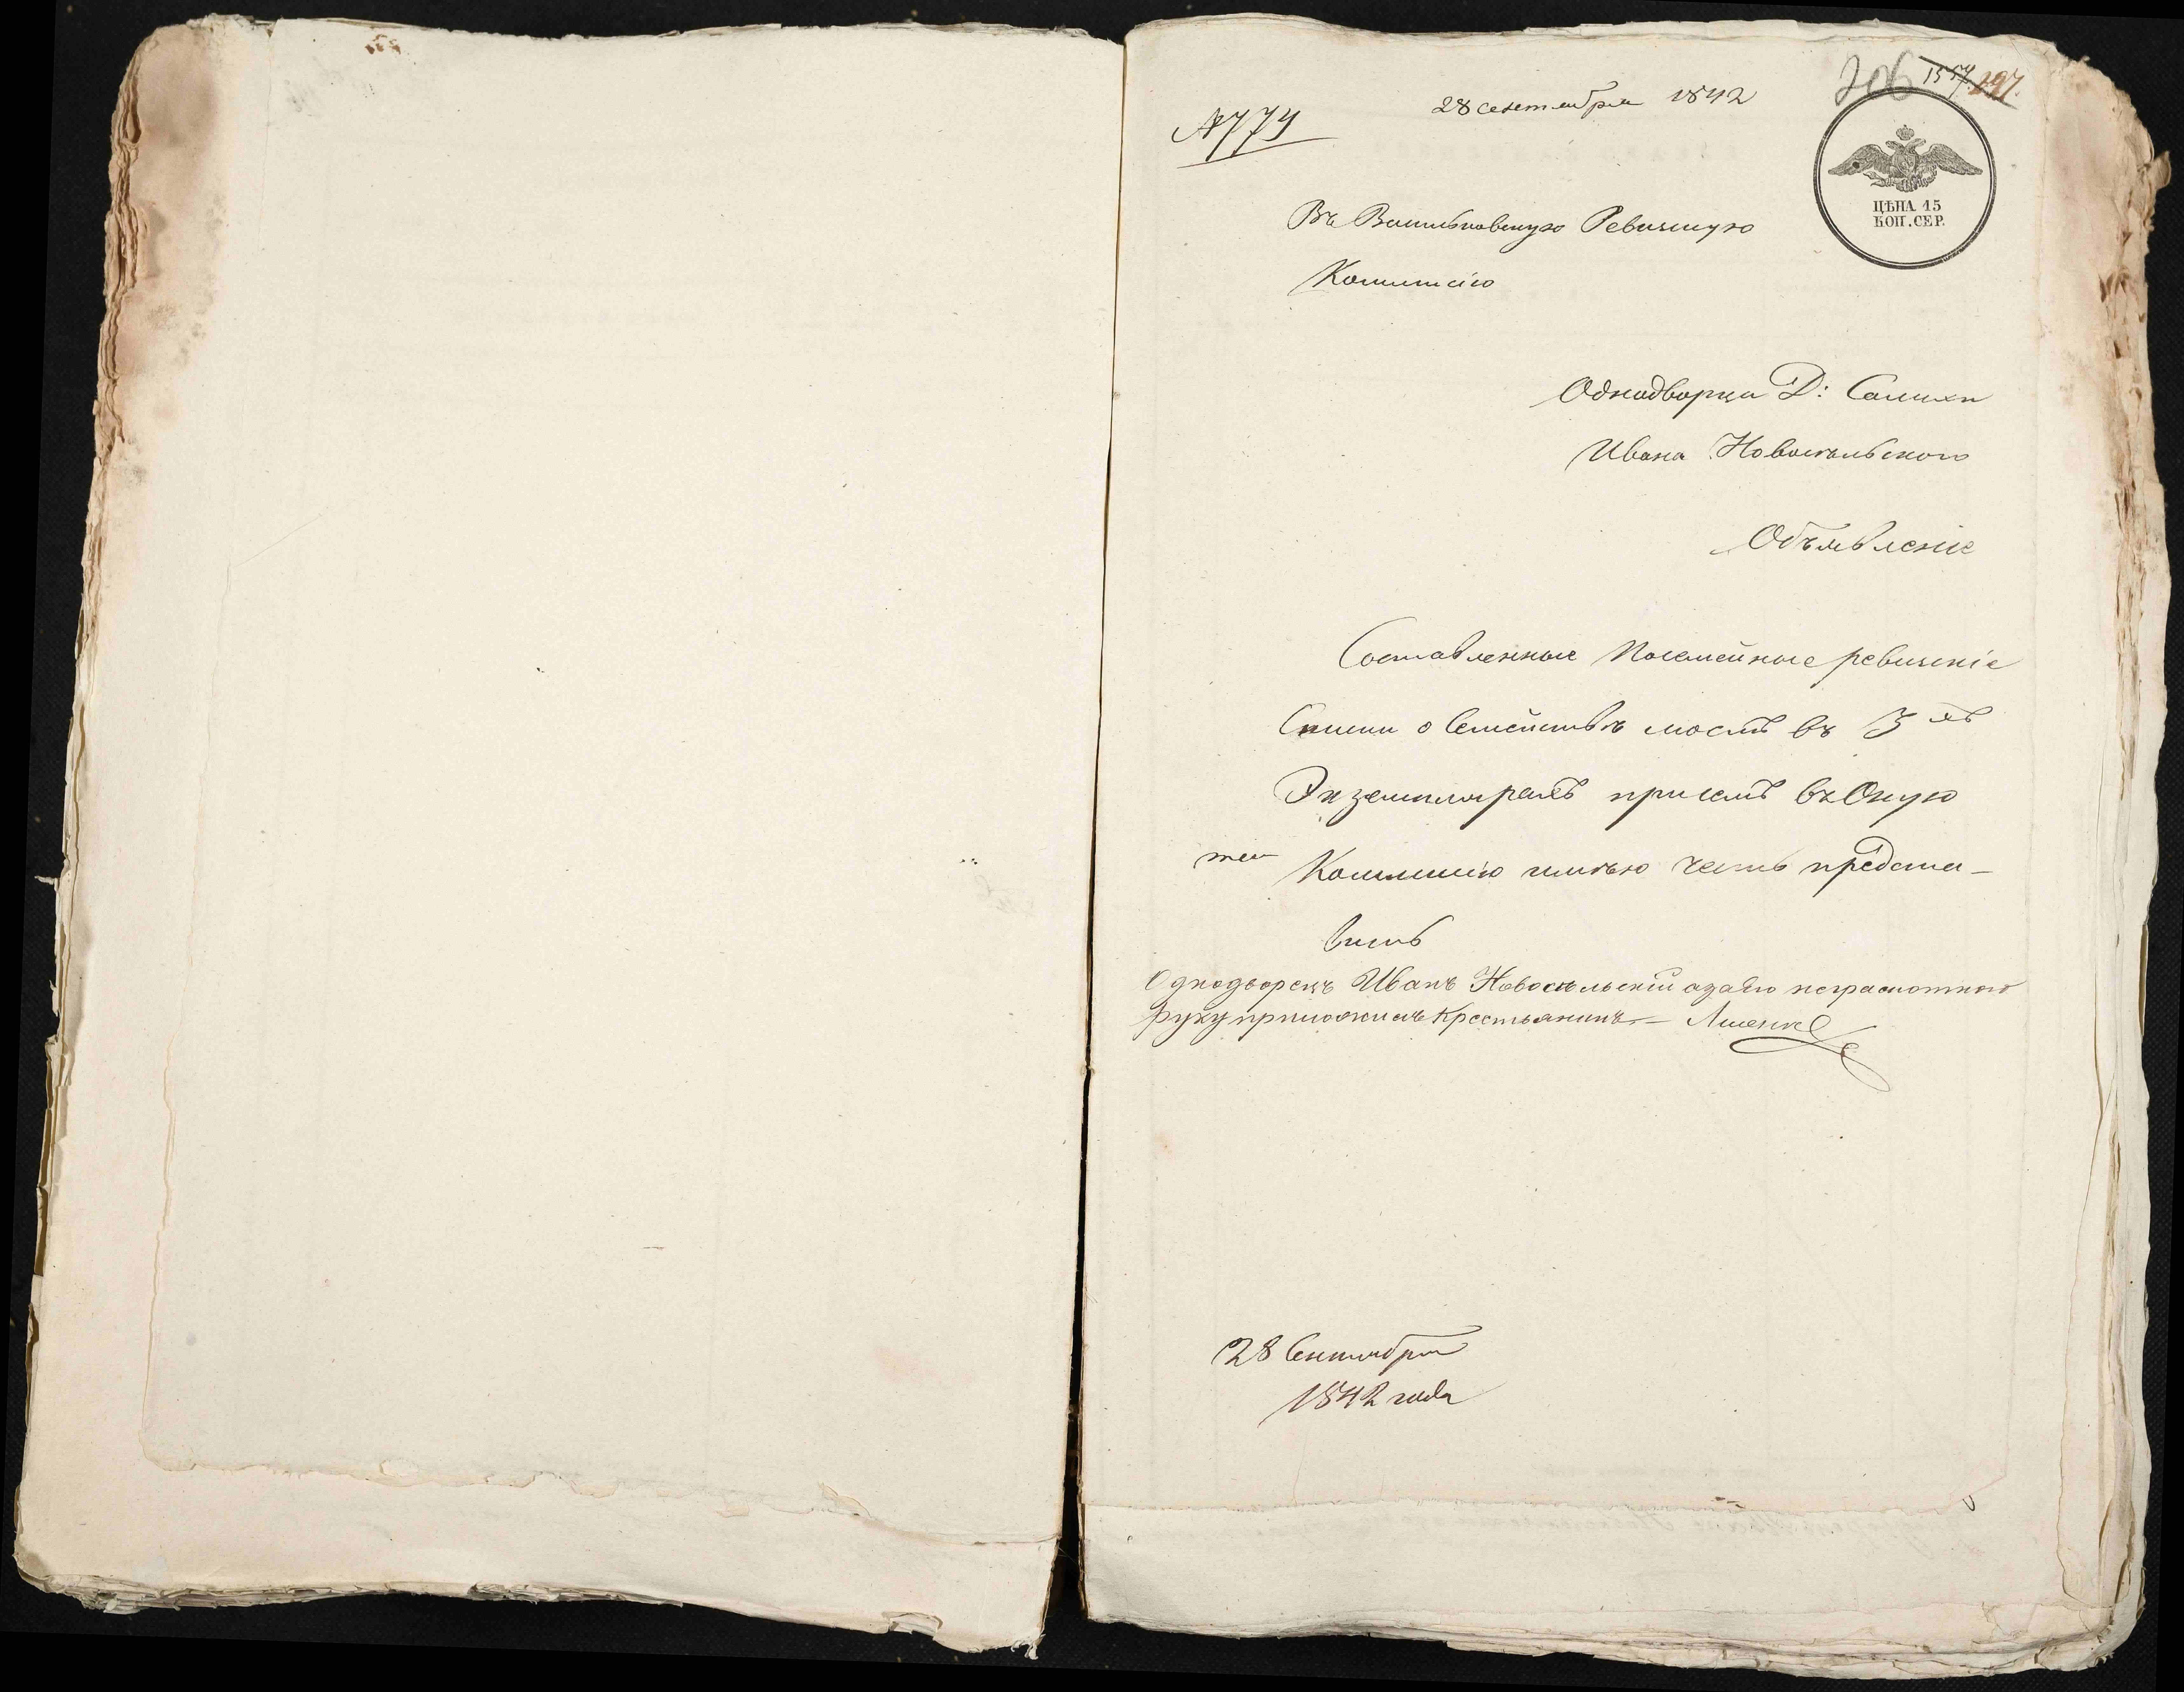 206 1554 297
№ 774
28 сентября 1842
ЦѢНА 15
КОП. СЕР.
Въ Васильковскую Ревизскую
Коммисію
Однодворца Д:
Ивана Новосѣльского
Объявленіе
Составленные Посемейные ревизскіе
Списки о Семействѣ моемъ въ 3хъ
Экземплярахъ присемъ въ Оную
Коммисію имѣю честь предста-
вить
Однодворецъ Иванъ Новосѣльскій а за его неграмотного
руку приложилъ Крестьянинъ
28 Сентября
1842 года